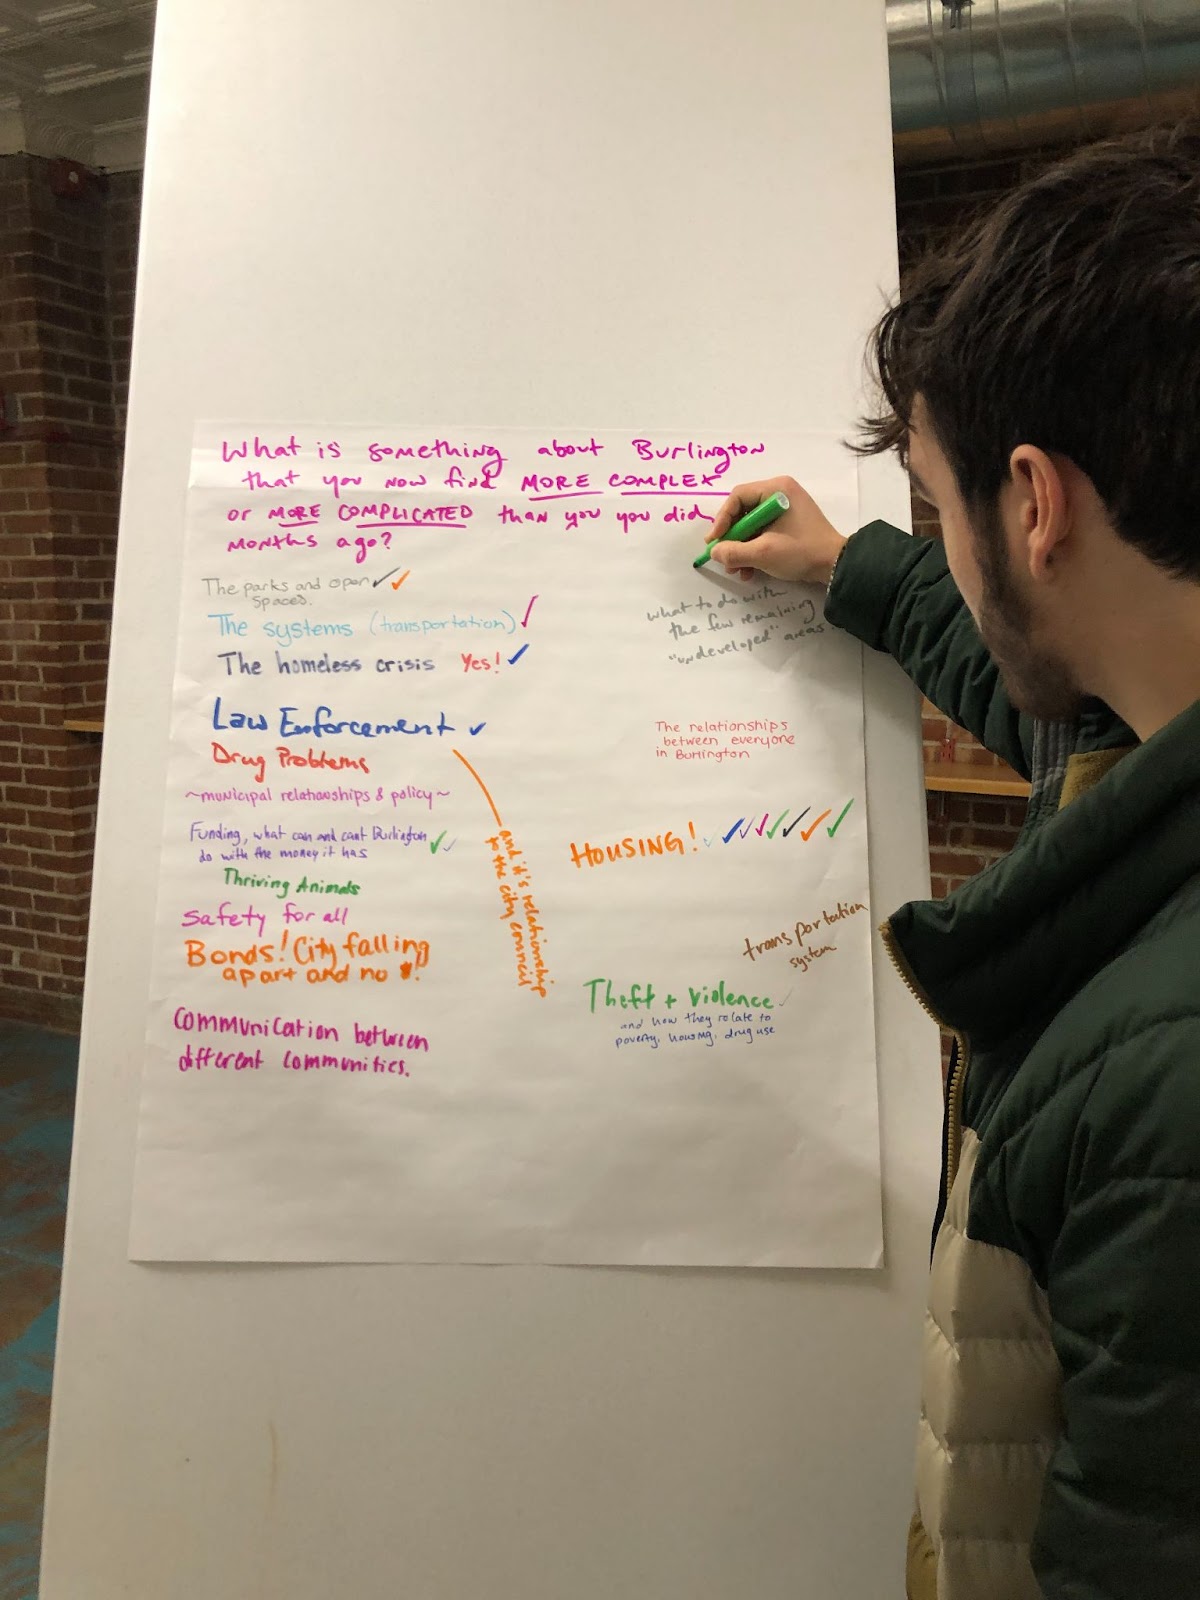 What is something about Burlington
that you now find MORE COMPLEX
or MORE COMPLICATED than you you did
months ago?
The parks and open
spaces.
The systems (transportation)
The homeless crisis Yes!
Law Enforcement
and it's relationship
to the city council
Drug Problems
~municipal relationships & policy~
Funding, what can and cant Burlington
do with the money it has
Thriving Animals
Safety for all
Bonds! City falling
apart and no $!
Communication between
different communities.
what to do with
the few remaining
"undeveloped" areas.
The relationships
between everyone
in Burlington
HOUSING!
transportation
system
Theft + violence
and how they relate to
poverty, housing, drug use